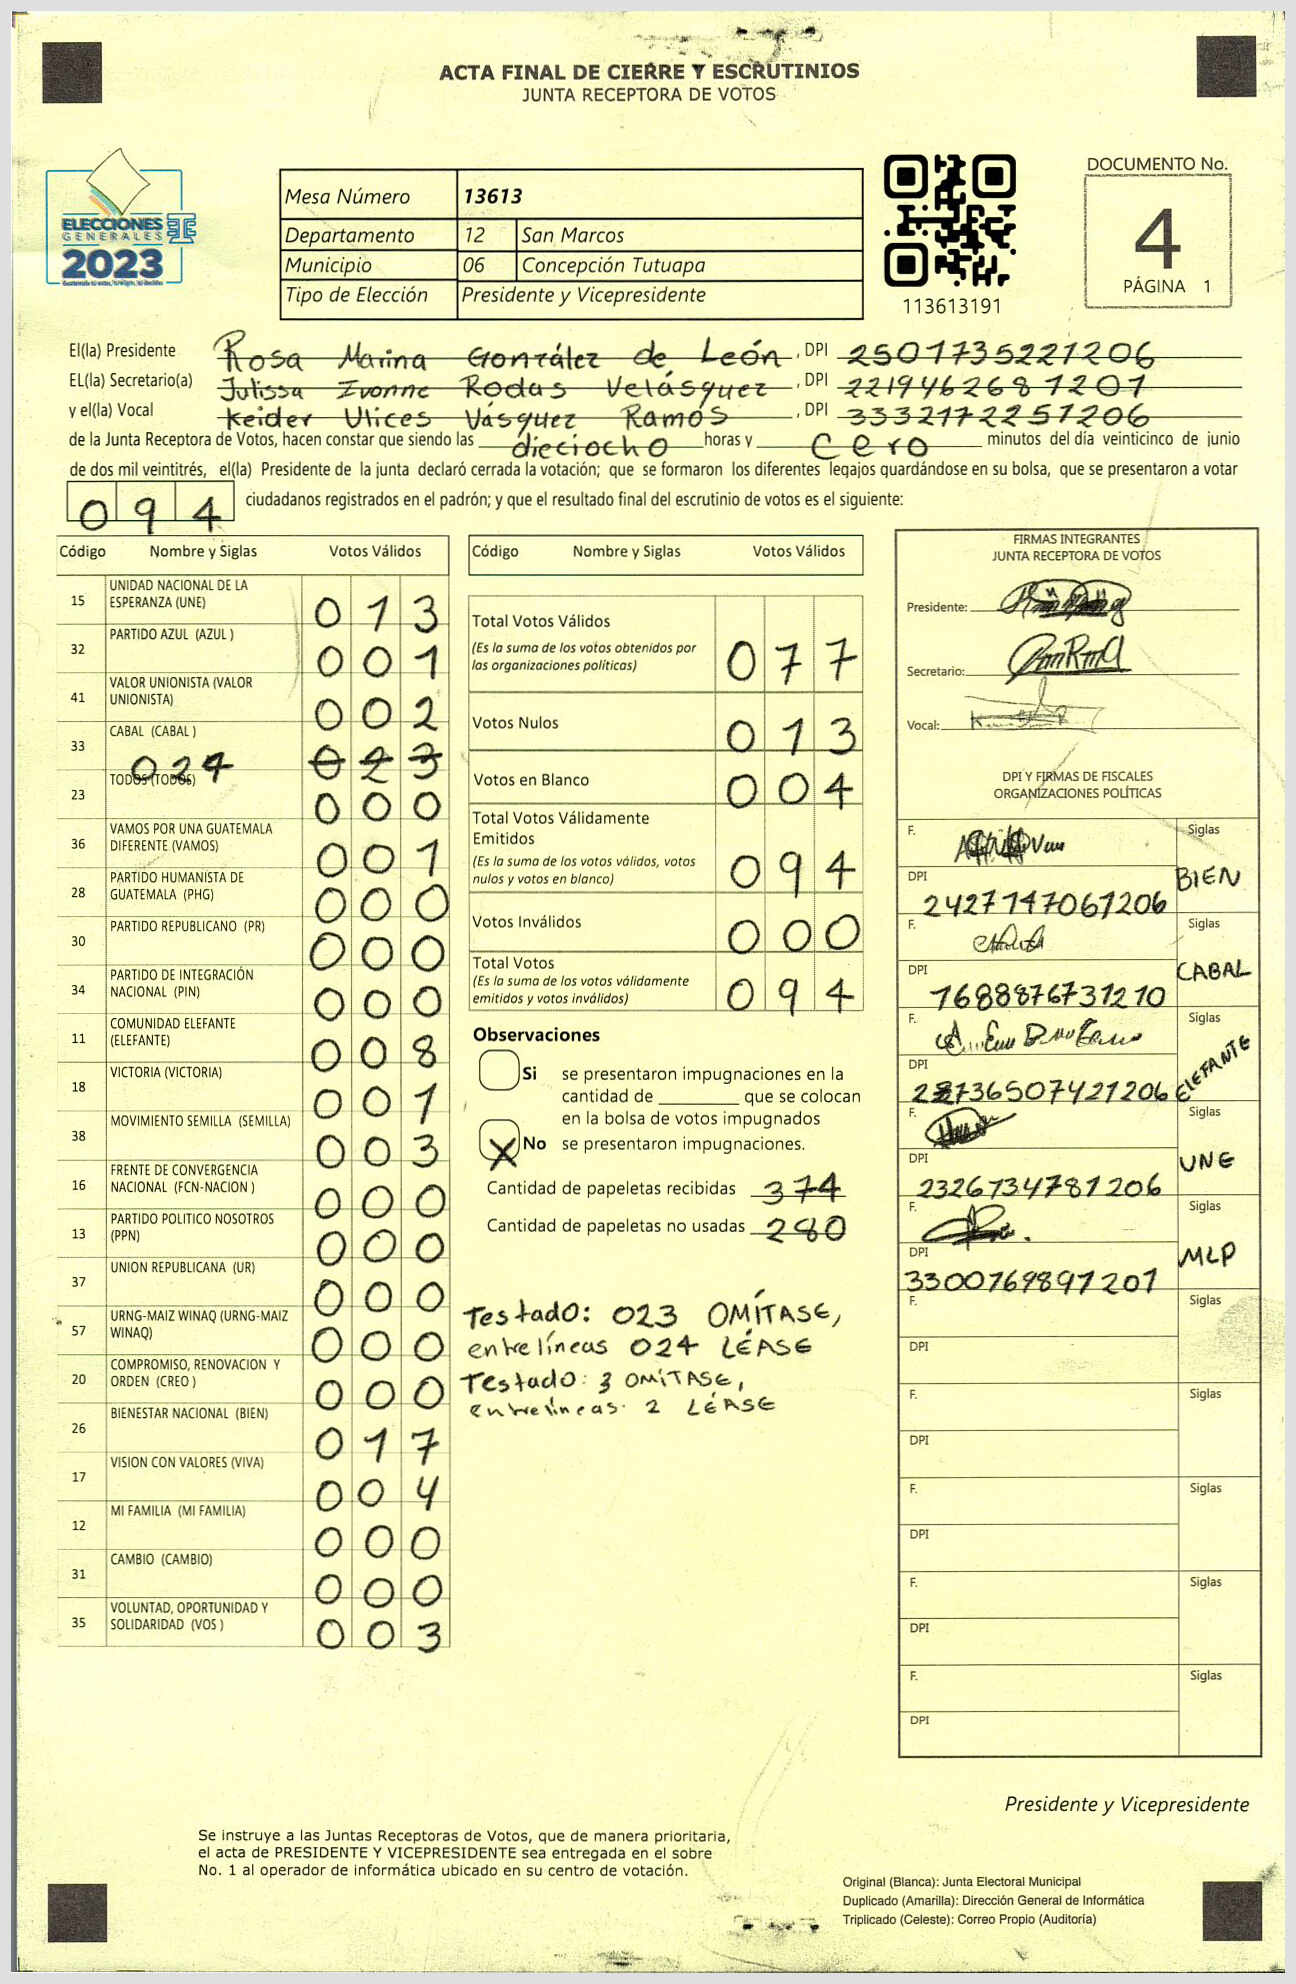 ACTA FINAL DE CIERRE Y ESCRUTINIOS
JUNTA RECEPTORA DE VOTOS
ELECCIONES
GENERALES
2023
Mesa Número 13613
Departamento 12 San Marcos
Municipio 06 Concepción Tutuapa
Tipo de Elección Presidente y Vicepresidente
113613191
DOCUMENTO No.
4
PÁGINA 1
El(la) Presidente Rosa Marina González de León, DPI 2501735221206
EL(la) Secretario(a) Julissa Ivonne Rodas Velásquez, DPI 2219462681201
y el(la) Vocal Keider Ulices Vásquez Ramos, DPI 3332172251206
de la Junta Receptora de Votos, hacen constar que siendo las dieciocho horas y cero minutos del día veinticinco de junio
de dos mil veintitrés, el(la) Presidente de la junta declaró cerrada la votación; que se formaron los diferentes legajos guardándose en su bolsa, que se presentaron a votar
094 ciudadanos registrados en el padrón; y que el resultado final del escrutinio de votos es el siguiente:
Código Nombre y Siglas Votos Válidos
15 UNIDAD NACIONAL DE LA ESPERANZA (UNE) 013
32 PARTIDO AZUL (AZUL ) 001
41 VALOR UNIONISTA (VALOR UNIONISTA) 002
33 CABAL (CABAL ) 024 023
23 TODOS (TODOS) 000
36 VAMOS POR UNA GUATEMALA DIFERENTE (VAMOS) 001
28 PARTIDO HUMANISTA DE GUATEMALA (PHG) 000
30 PARTIDO REPUBLICANO (PR) 000
34 PARTIDO DE INTEGRACIÓN NACIONAL (PIN) 000
11 COMUNIDAD ELEFANTE (ELEFANTE) 008
18 VICTORIA (VICTORIA) 001
38 MOVIMIENTO SEMILLA (SEMILLA) 003
16 FRENTE DE CONVERGENCIA NACIONAL (FCN-NACION ) 000
13 PARTIDO POLITICO NOSOTROS (PPN) 000
37 UNION REPUBLICANA (UR) 000
57 URNG-MAIZ WINAQ (URNG-MAIZ WINAQ) 000
20 COMPROMISO, RENOVACION Y ORDEN (CREO ) 000
26 BIENESTAR NACIONAL (BIEN) 017
17 VISION CON VALORES (VIVA) 004
12 MI FAMILIA (MI FAMILIA) 000
31 CAMBIO (CAMBIO) 000
35 VOLUNTAD, OPORTUNIDAD Y SOLIDARIDAD (VOS ) 003
Código Nombre y Siglas Votos Válidos
Total Votos Válidos 077
(Es la suma de los votos obtenidos por
las organizaciones políticas)
Votos Nulos 013
Votos en Blanco 004
Total Votos Válidamente
Emitidos 094
(Es la suma de los votos válidos, votos
nulos y votos en blanco)
Votos Inválidos 000
Total Votos 094
(Es la suma de los votos válidamente
emitidos y votos inválidos)
Observaciones
Si se presentaron impugnaciones en la
cantidad de ________ que se colocan
en la bolsa de votos impugnados
X No se presentaron impugnaciones.
Cantidad de papeletas recibidas 374
Cantidad de papeletas no usadas 280
Testado: 023 OMÍTASE,
entrelíneas 024 LÉASE
Testado: 3 OMÍTASE,
entrelíneas. 2 LÉASE
FIRMAS INTEGRANTES
JUNTA RECEPTORA DE VOTOS
Presidente:
Secretario:
Vocal:
DPI Y FIRMAS DE FISCALES
ORGANIZACIONES POLÍTICAS
F. Siglas
DPI 2427147061206 BIEN
F. Siglas
DPI 1688876731210 CABAL
F. Siglas
DPI ELEFANTE
F. Siglas
DPI 2326734781206 UNE
F. Siglas
DPI 3300769897201 MLP
F. Siglas
DPI
F. Siglas
DPI
F. Siglas
DPI
F. Siglas
DPI
F. Siglas
DPI
Presidente y Vicepresidente
Se instruye a las Juntas Receptoras de Votos, que de manera prioritaria,
el acta de PRESIDENTE Y VICEPRESIDENTE sea entregada en el sobre
No. 1 al operador de informática ubicado en su centro de votación.
Original (Blanca): Junta Electoral Municipal
Duplicado (Amarilla): Dirección General de Informática
Triplicado (Celeste): Correo Propio (Auditoría)